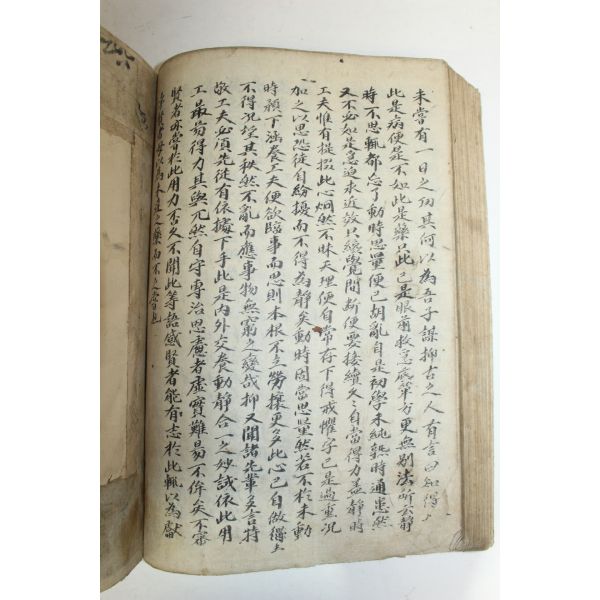 未嘗有一日之功其何以為吾子謀抑古之人有言曰知得如
此是病便是不如此是藥只此已是眼前救急底單方更無別法所云静
時不思輒都忘了動時思量便已胡亂自是初學未純熟時通患然
又不必如是急迫求近效只纔覺間斷便要接續久之自當得力盖静時
工夫惟有提掇此心炯然不昧天理便自常存下得戒懼字已是過重况
加之以思恐徒自紛擾而不得為静矣動時固當思量然若不於未動
時預下涵養工夫便欲臨事而思則本根不立勞攘更多此心已自做得主
不得况望其秩然不亂而應事物無窮之變哉抑又聞諸先輩矣言持
敬工夫必須先從有依據下手此是内外交養動静合一之妙誠依此用
工最易得力其與兀然自守專治思慮者虚實難易不侔矣不審
賢者亦嘗於此用力否久不聞此等語感賢者能有志於此輒以為獻